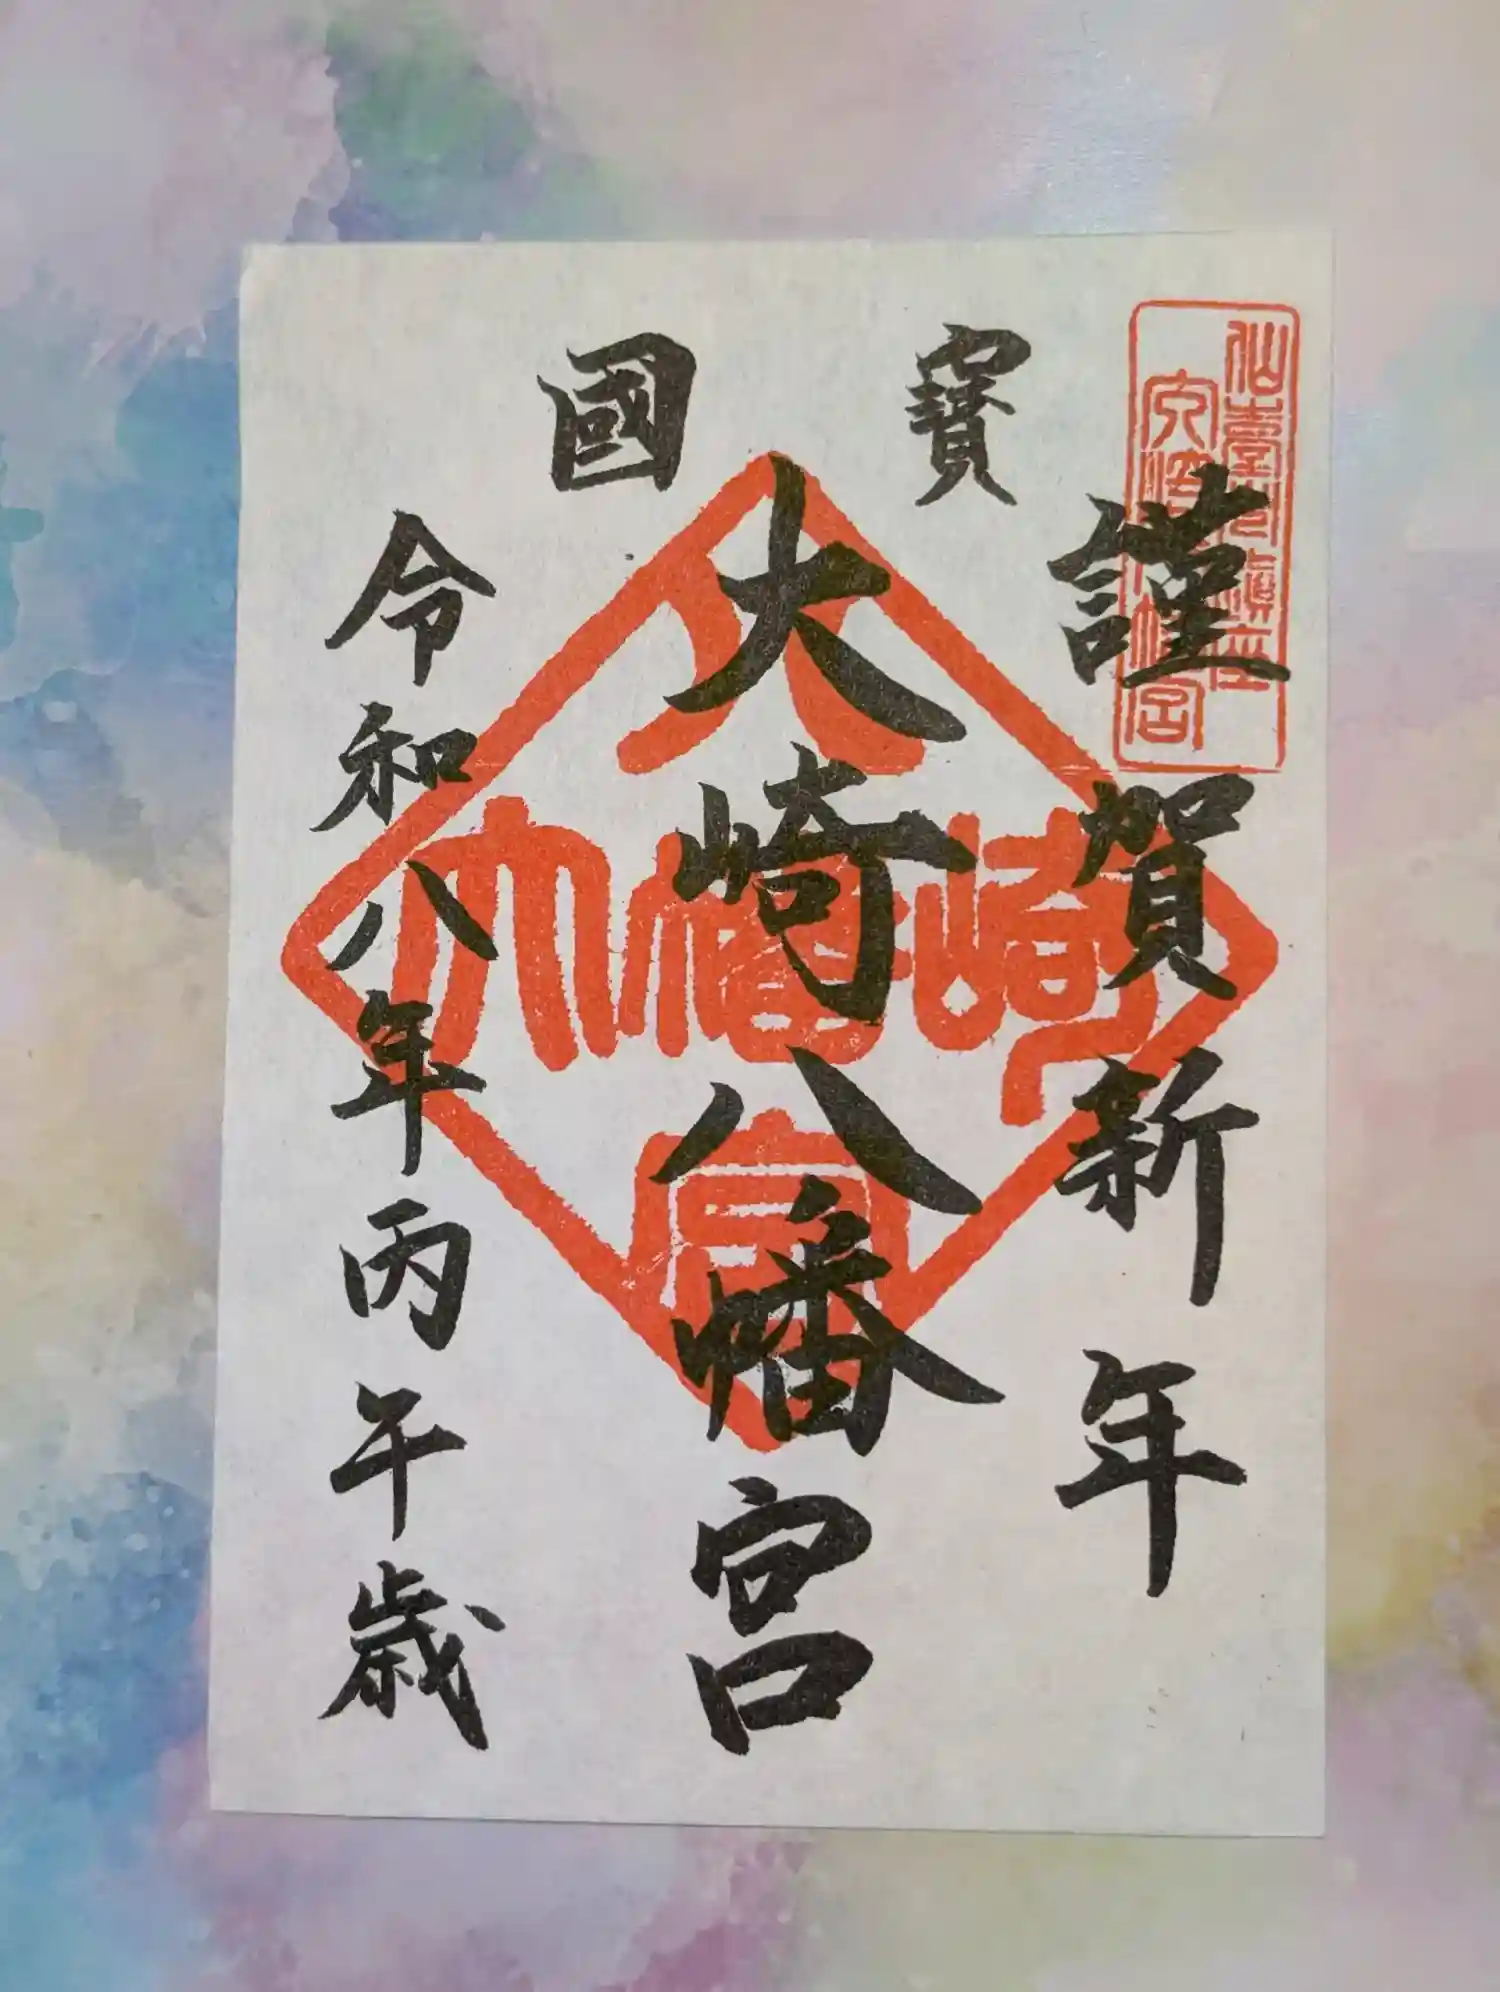 仙臺總鎮座
謹賀新年
寶國
大崎八幡宮
大崎八幡宮
令和八年丙午歳